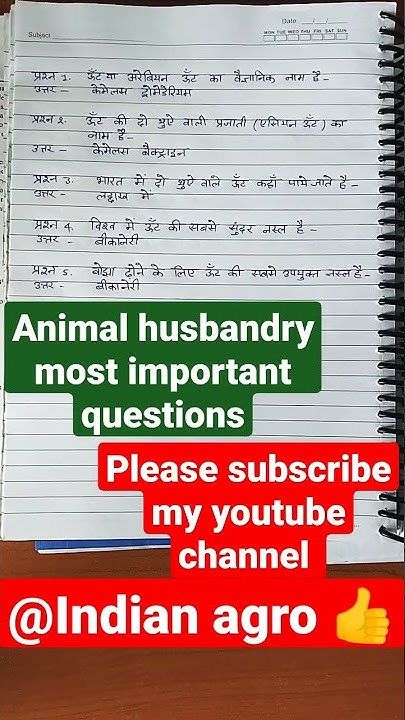 Date / /
Subject
MON TUE WED THU FRI SAT SUN
प्रश्न 1. ऊँट या अरेबियन ऊँट का वैज्ञानिक नाम है-
उत्तर - केमेलस ड्रोमेडेरियस
प्रश्न 2. ऊँट की दो थुऐ वाली प्रजाती (एसियन ऊँट) का
नाम है-
उत्तर - केमेलस बैक्ट्राइन
प्रश्न 3. भारत में दो थुऐ वाले ऊँट कहाँ पाये जाते है-
उत्तर - लद्दाख में
प्रश्न 4. विश्व में ऊँट की सबसे सुंदर नस्ल है-
उत्तर - बीकानेरी
प्रश्न 5. बोझा ढोने के लिए ऊँट की सबसे उपयुक्त नस्ल है-
उत्तर - बीकानेरी
Animal husbandry
most important
questions
Please subscribe
my youtube
channel
@Indian agro 👍